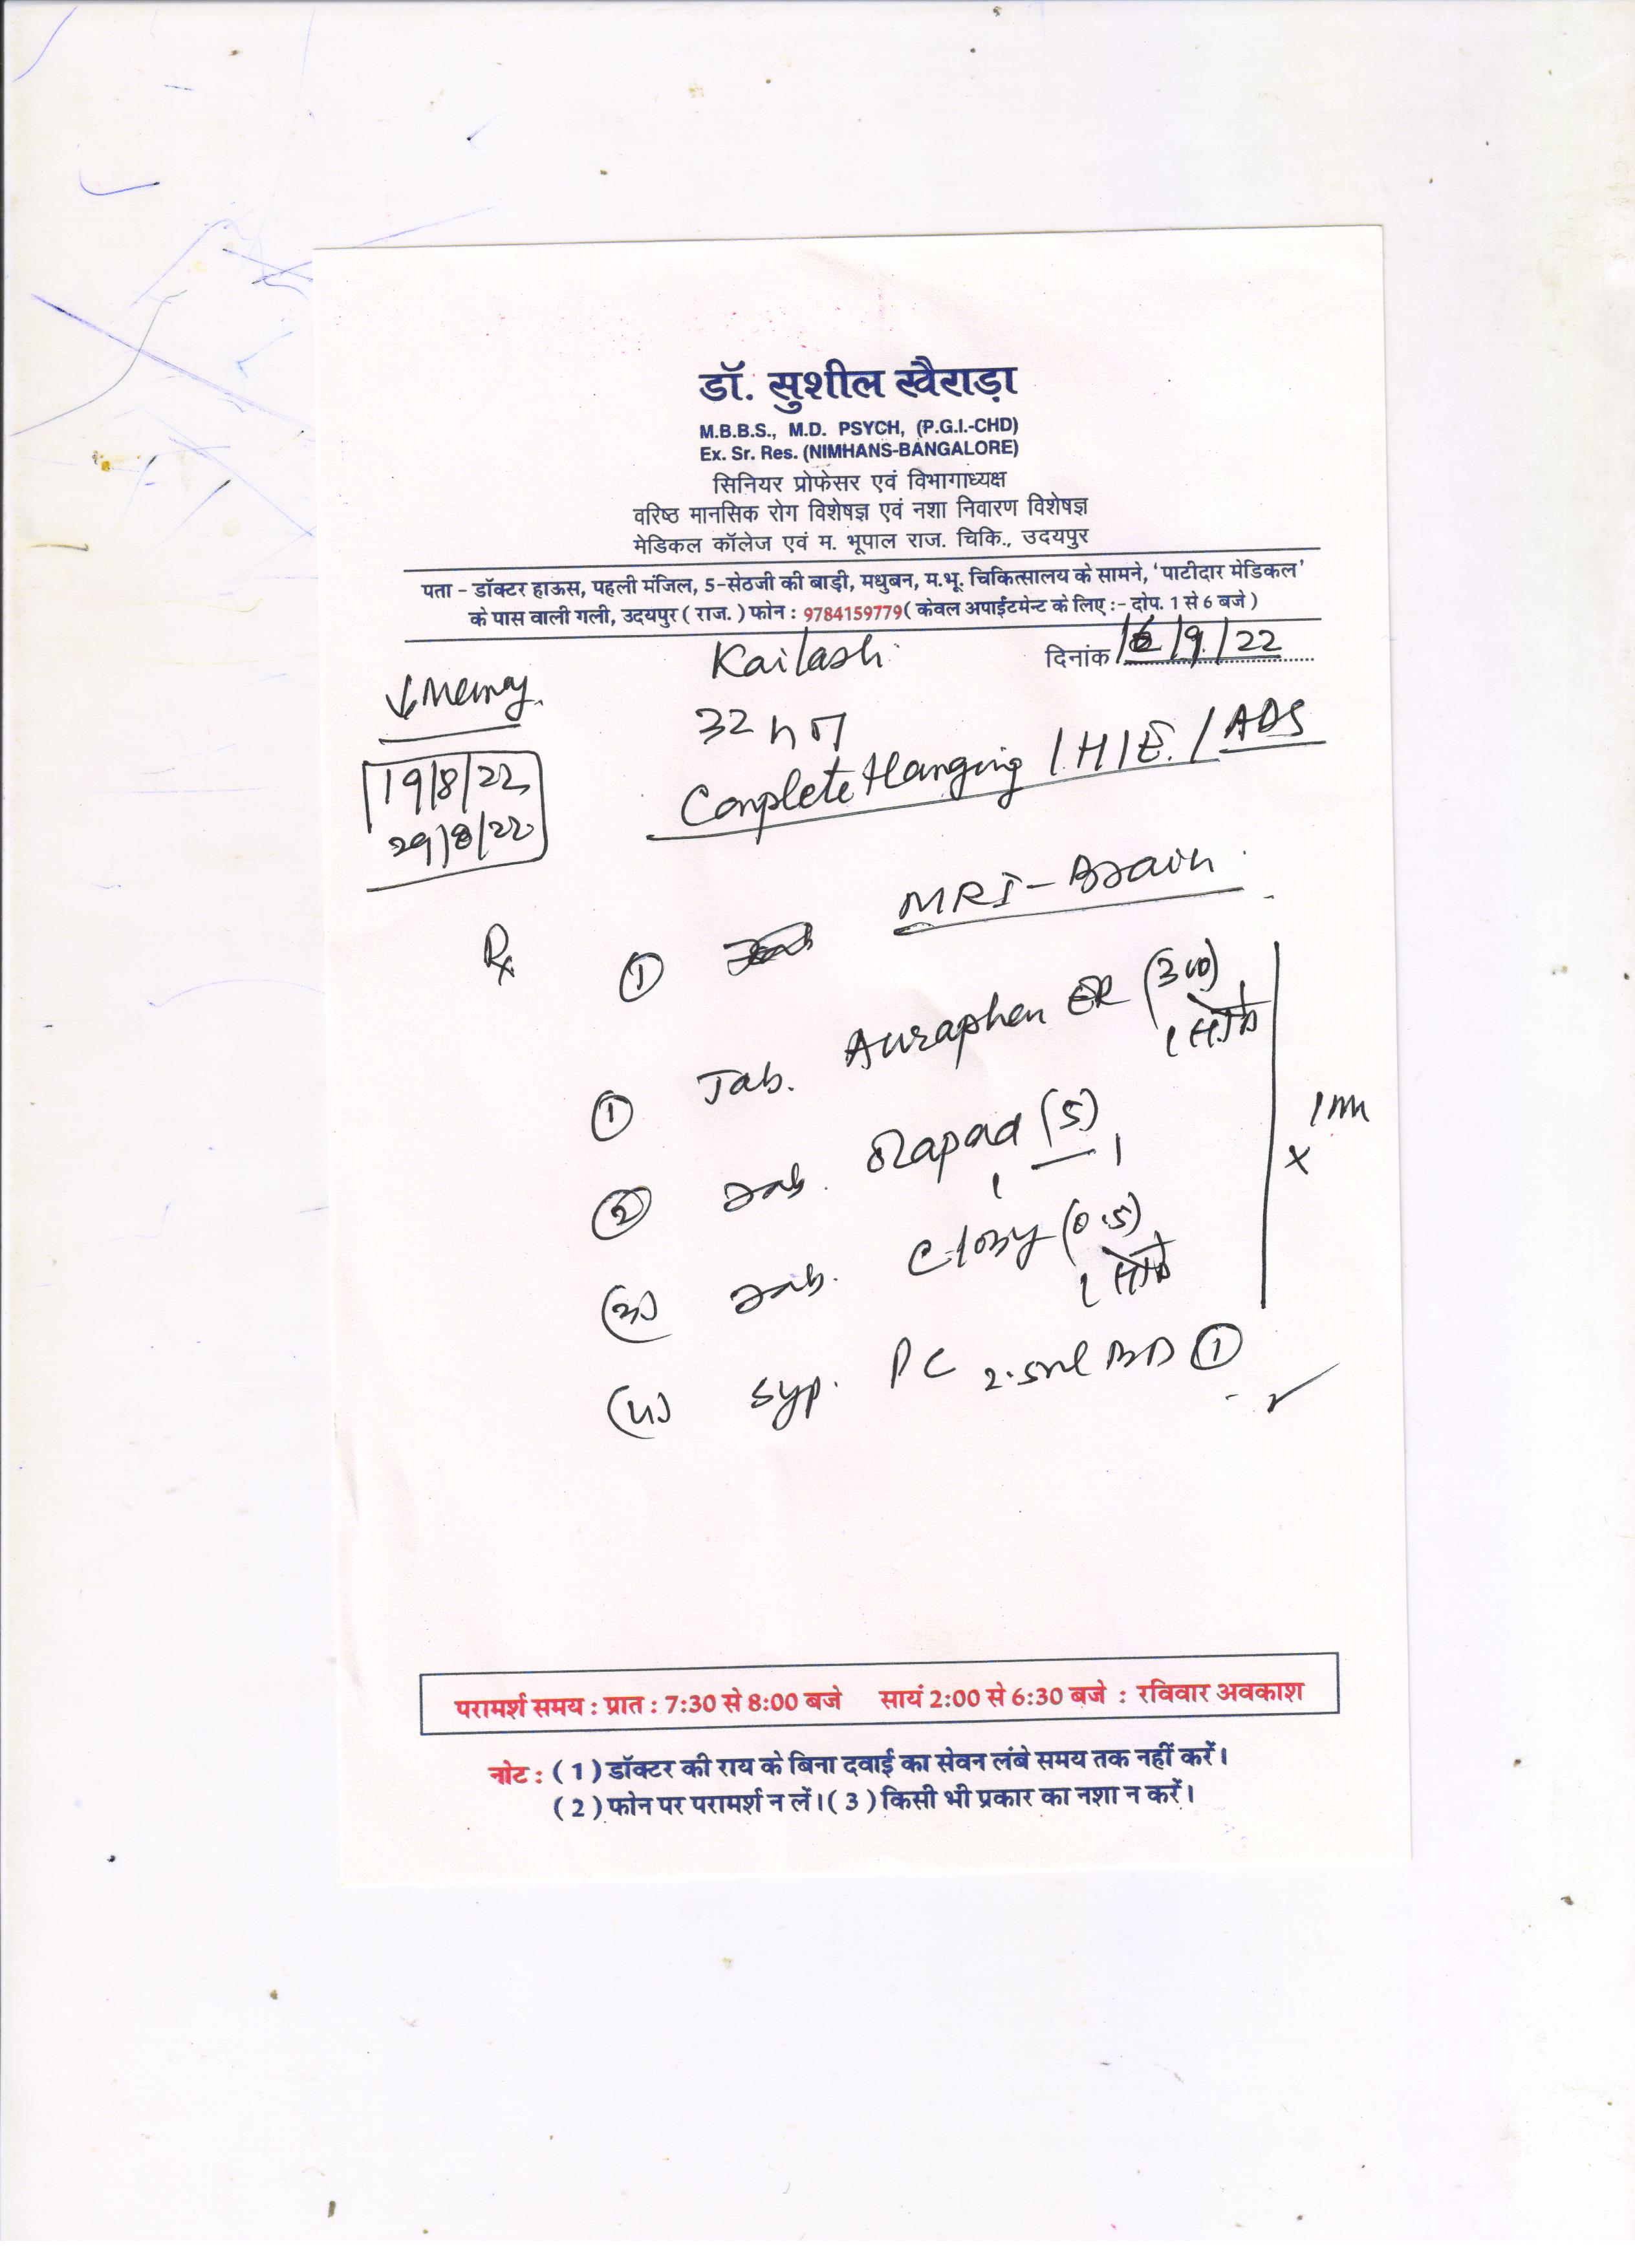 डॉ. सुशील खैराड़ा
M.B.B.S., M.D. PSYCH, (P.G.I.-CHD)
Ex. Sr. Res. (NIMHANS-BANGALORE)
सिनियर प्रोफेसर एवं विभागाध्यक्ष
वरिष्ठ मानसिक रोग विशेषज्ञ एवं नशा निवारण विशेषज्ञ
मेडिकल कॉलेज एवं म. भूपाल राज. चिकि., उदयपुर
पता - डॉक्टर हाऊस, पहली मंजिल, 5-सेठजी की बाड़ी, मधुबन, म.भू. चिकित्सालय के सामने, 'पाटीदार मेडिकल'
के पास वाली गली, उदयपुर ( राज. ) फोन : 9784159779( केवल अपाईटमेन्ट के लिए :- दोप. 1 से 6 बजे )
Kailash
दिनांक 16/9/22
↓Memory
32 M
19/8/22
29/8/22
Complete Hanging / HIE / ADS
MRI - Brain
Rx
①
① Tab. Auraphen ER (300)
1
② Tab. (5)
1 — 1
(3) Tab. (0.5)
1
x 1m
(4) Syp. PC 2.5ml BD ①
परामर्श समय : प्रात : 7:30 से 8:00 बजे सायं 2:00 से 6:30 बजे : रविवार अवकाश
नोट : ( 1 ) डॉक्टर की राय के बिना दवाई का सेवन लंबे समय तक नहीं करें।
( 2 ) फोन पर परामर्श न लें। ( 3 ) किसी भी प्रकार का नशा न करें।